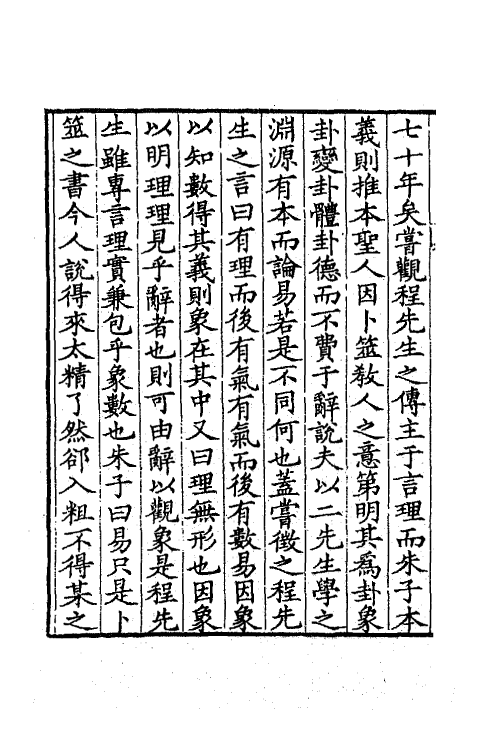 七十年矣嘗觀程先生之傳主于言理而朱子本
義則推本聖人因卜筮教人之意第明其爲卦象
卦變卦體卦德而不費于辭說夫以二先生學之
淵源有本而論易若是不同何也蓋嘗徴之程先
生之言曰有理而後有氣有氣而後有數易因象
以知數得其義則象在其中又曰理無形也因象
以明理理見乎辭者也則可由辭以觀象是程先
生雖專言理實兼包乎象數也朱子曰易只是卜
筮之書今人說得來太精了然郤入粗不得某之